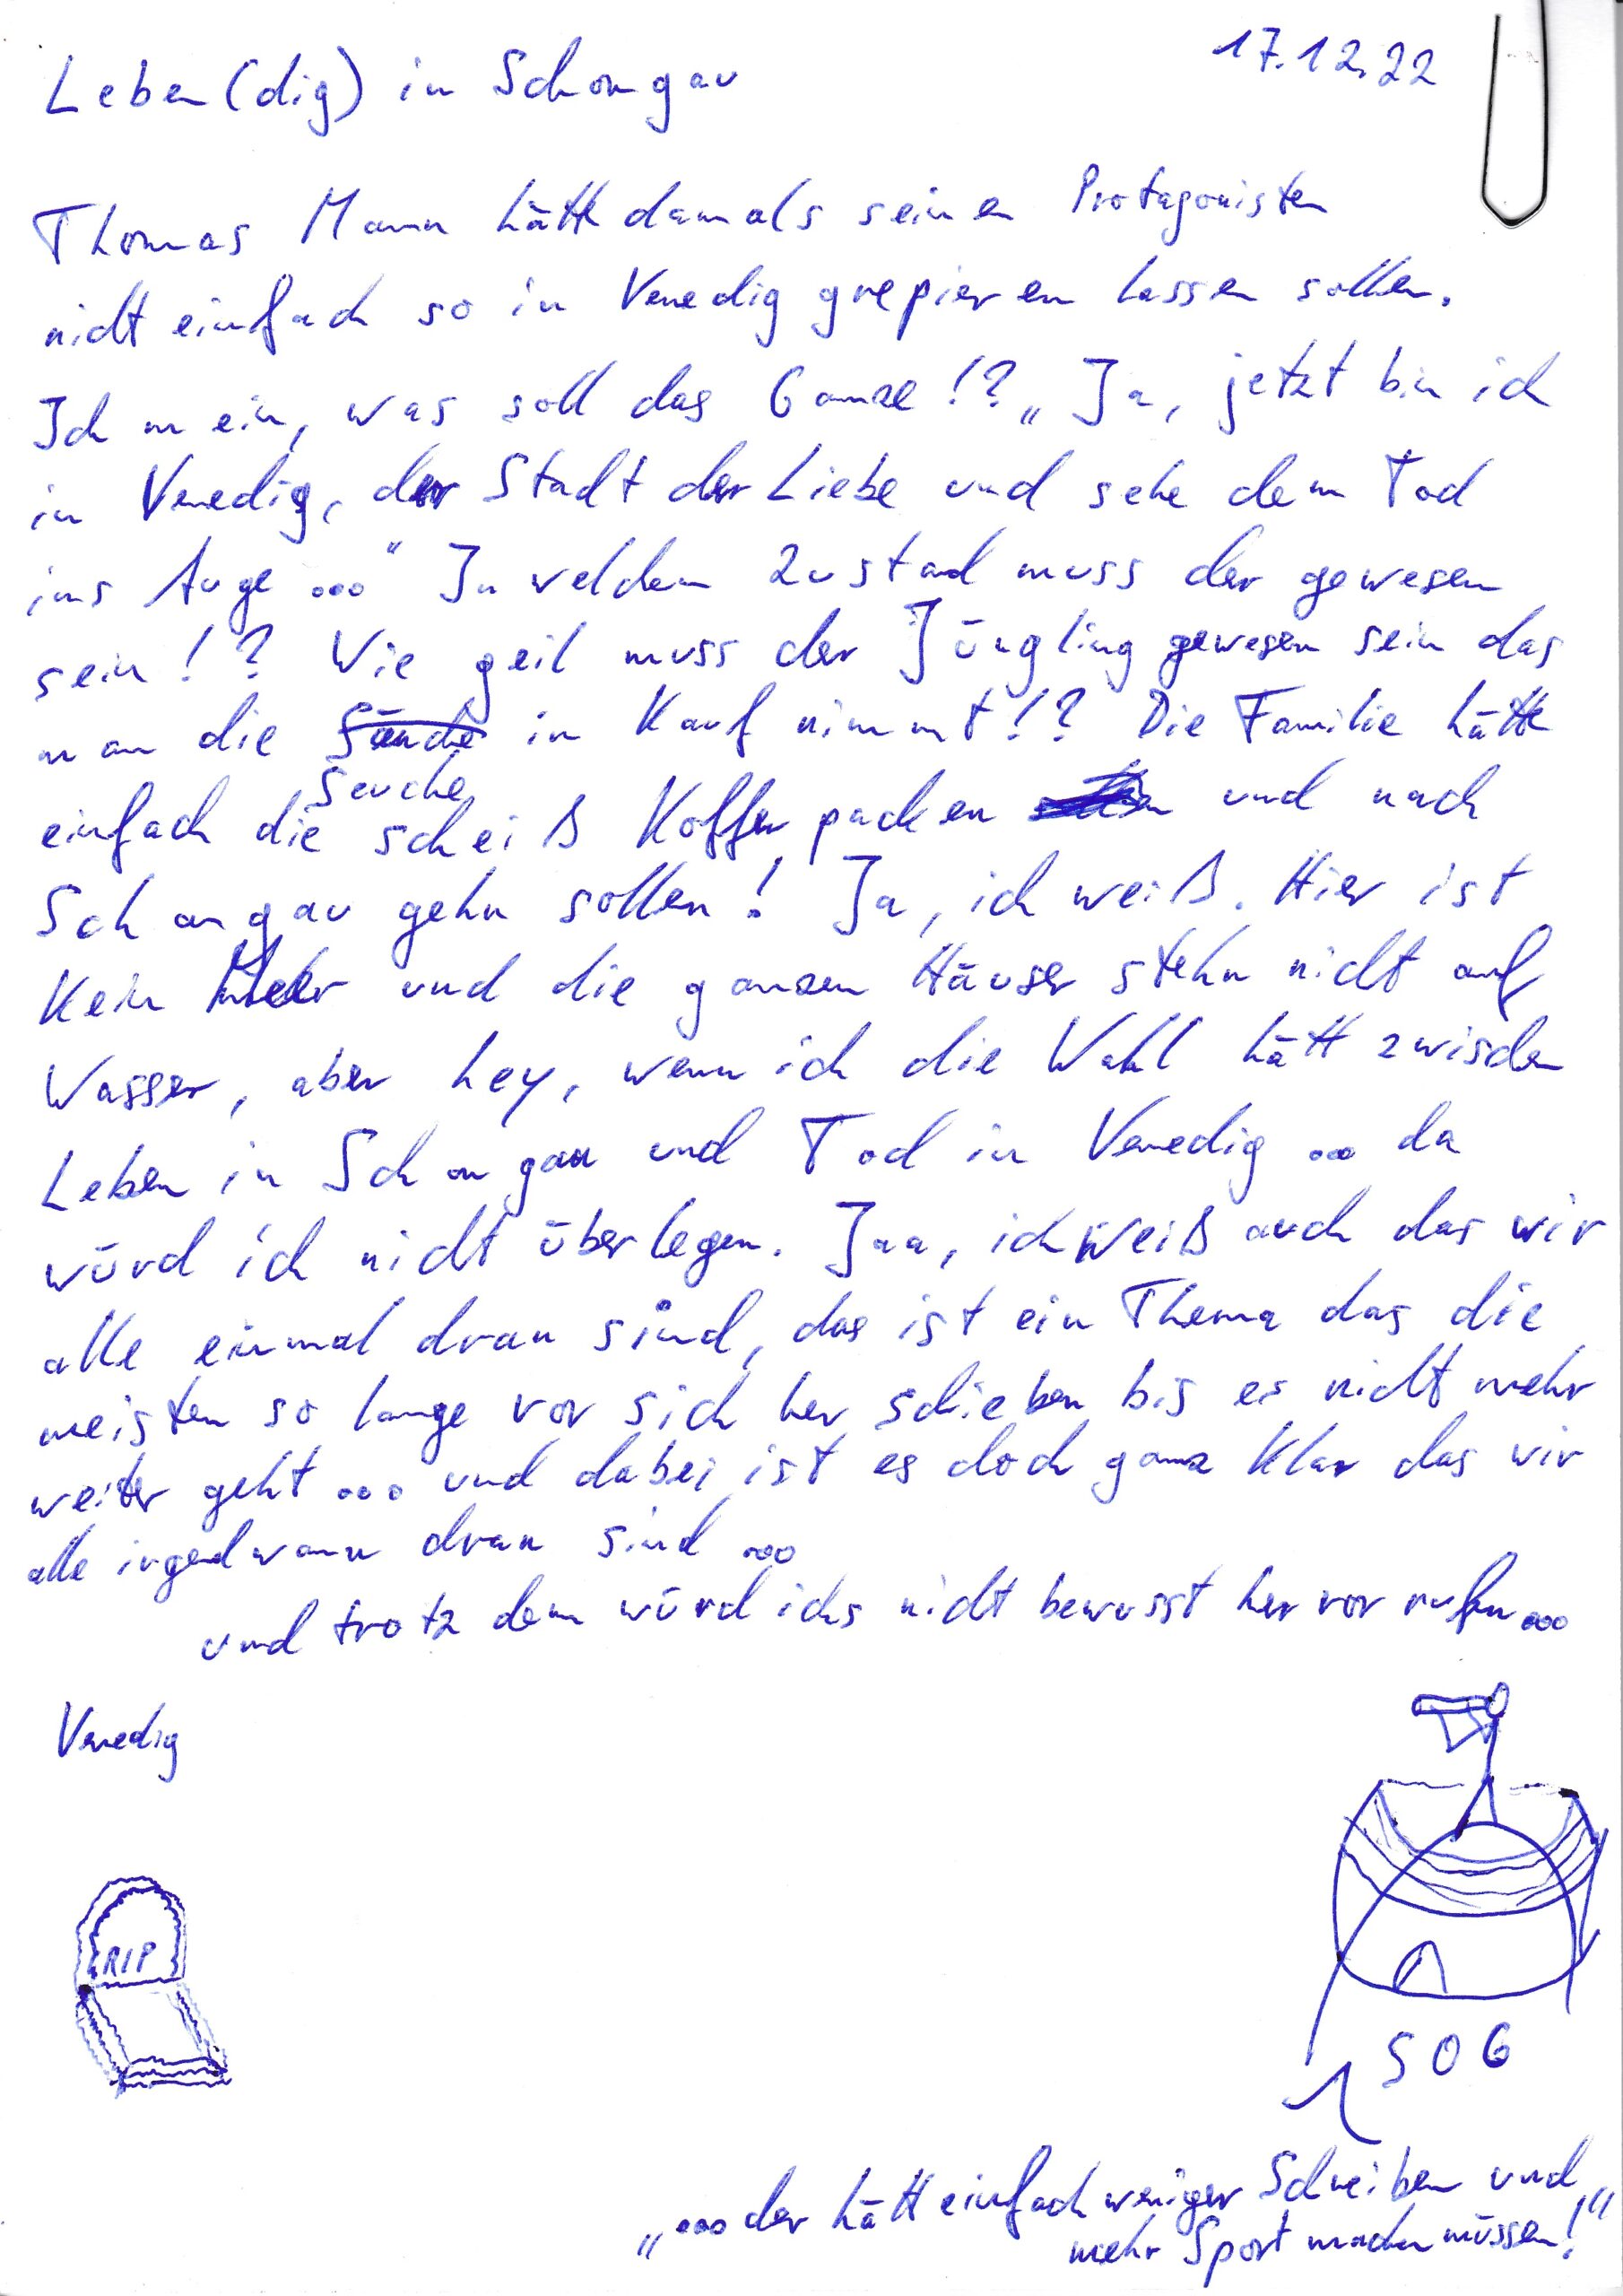 Leben(dig) in Schongau
17.12.22
Thomas Mann hätte damals seinen Protagonisten
nicht einfach so in Venedig grepieren lassen sollen.
Ich mein, was soll das Ganze!? „Ja, jetzt bin ich
in Venedig, der Stadt der Liebe und sehe dem Tod
ins Auge ..." In welchem Zustand muss der gewesen
sein!? Wie geil muss der Jüngling gewesen sein das
man die in Kauf nimmt!? Die Familie hätte
Seuche
einfach die scheiß Koffer packen und nach
Schongau gehn sollen! Ja, ich weiß. Hier ist
kein Meer und die ganzen Häuser stehn nicht auf
Wasser, aber hey, wenn ich die Wahl hätt zwischen
Leben in Schongau und Tod in Venedig ... da
würd ich nicht überlegen. Jaa, ich weiß auch das wir
alle einmal dran sind, das ist ein Thema das die
meisten so lange vor sich her schieben bis es nicht mehr
weiter geht ... und dabei ist es doch ganz klar das wir
alle irgendwann dran sind ...
und trotz dem würd ichs nicht bewusst her vor rufen ...
Venedig
RIP
SOG
„... der hätt einfach weniger Schreiben und
mehr Sport machen müssen!"